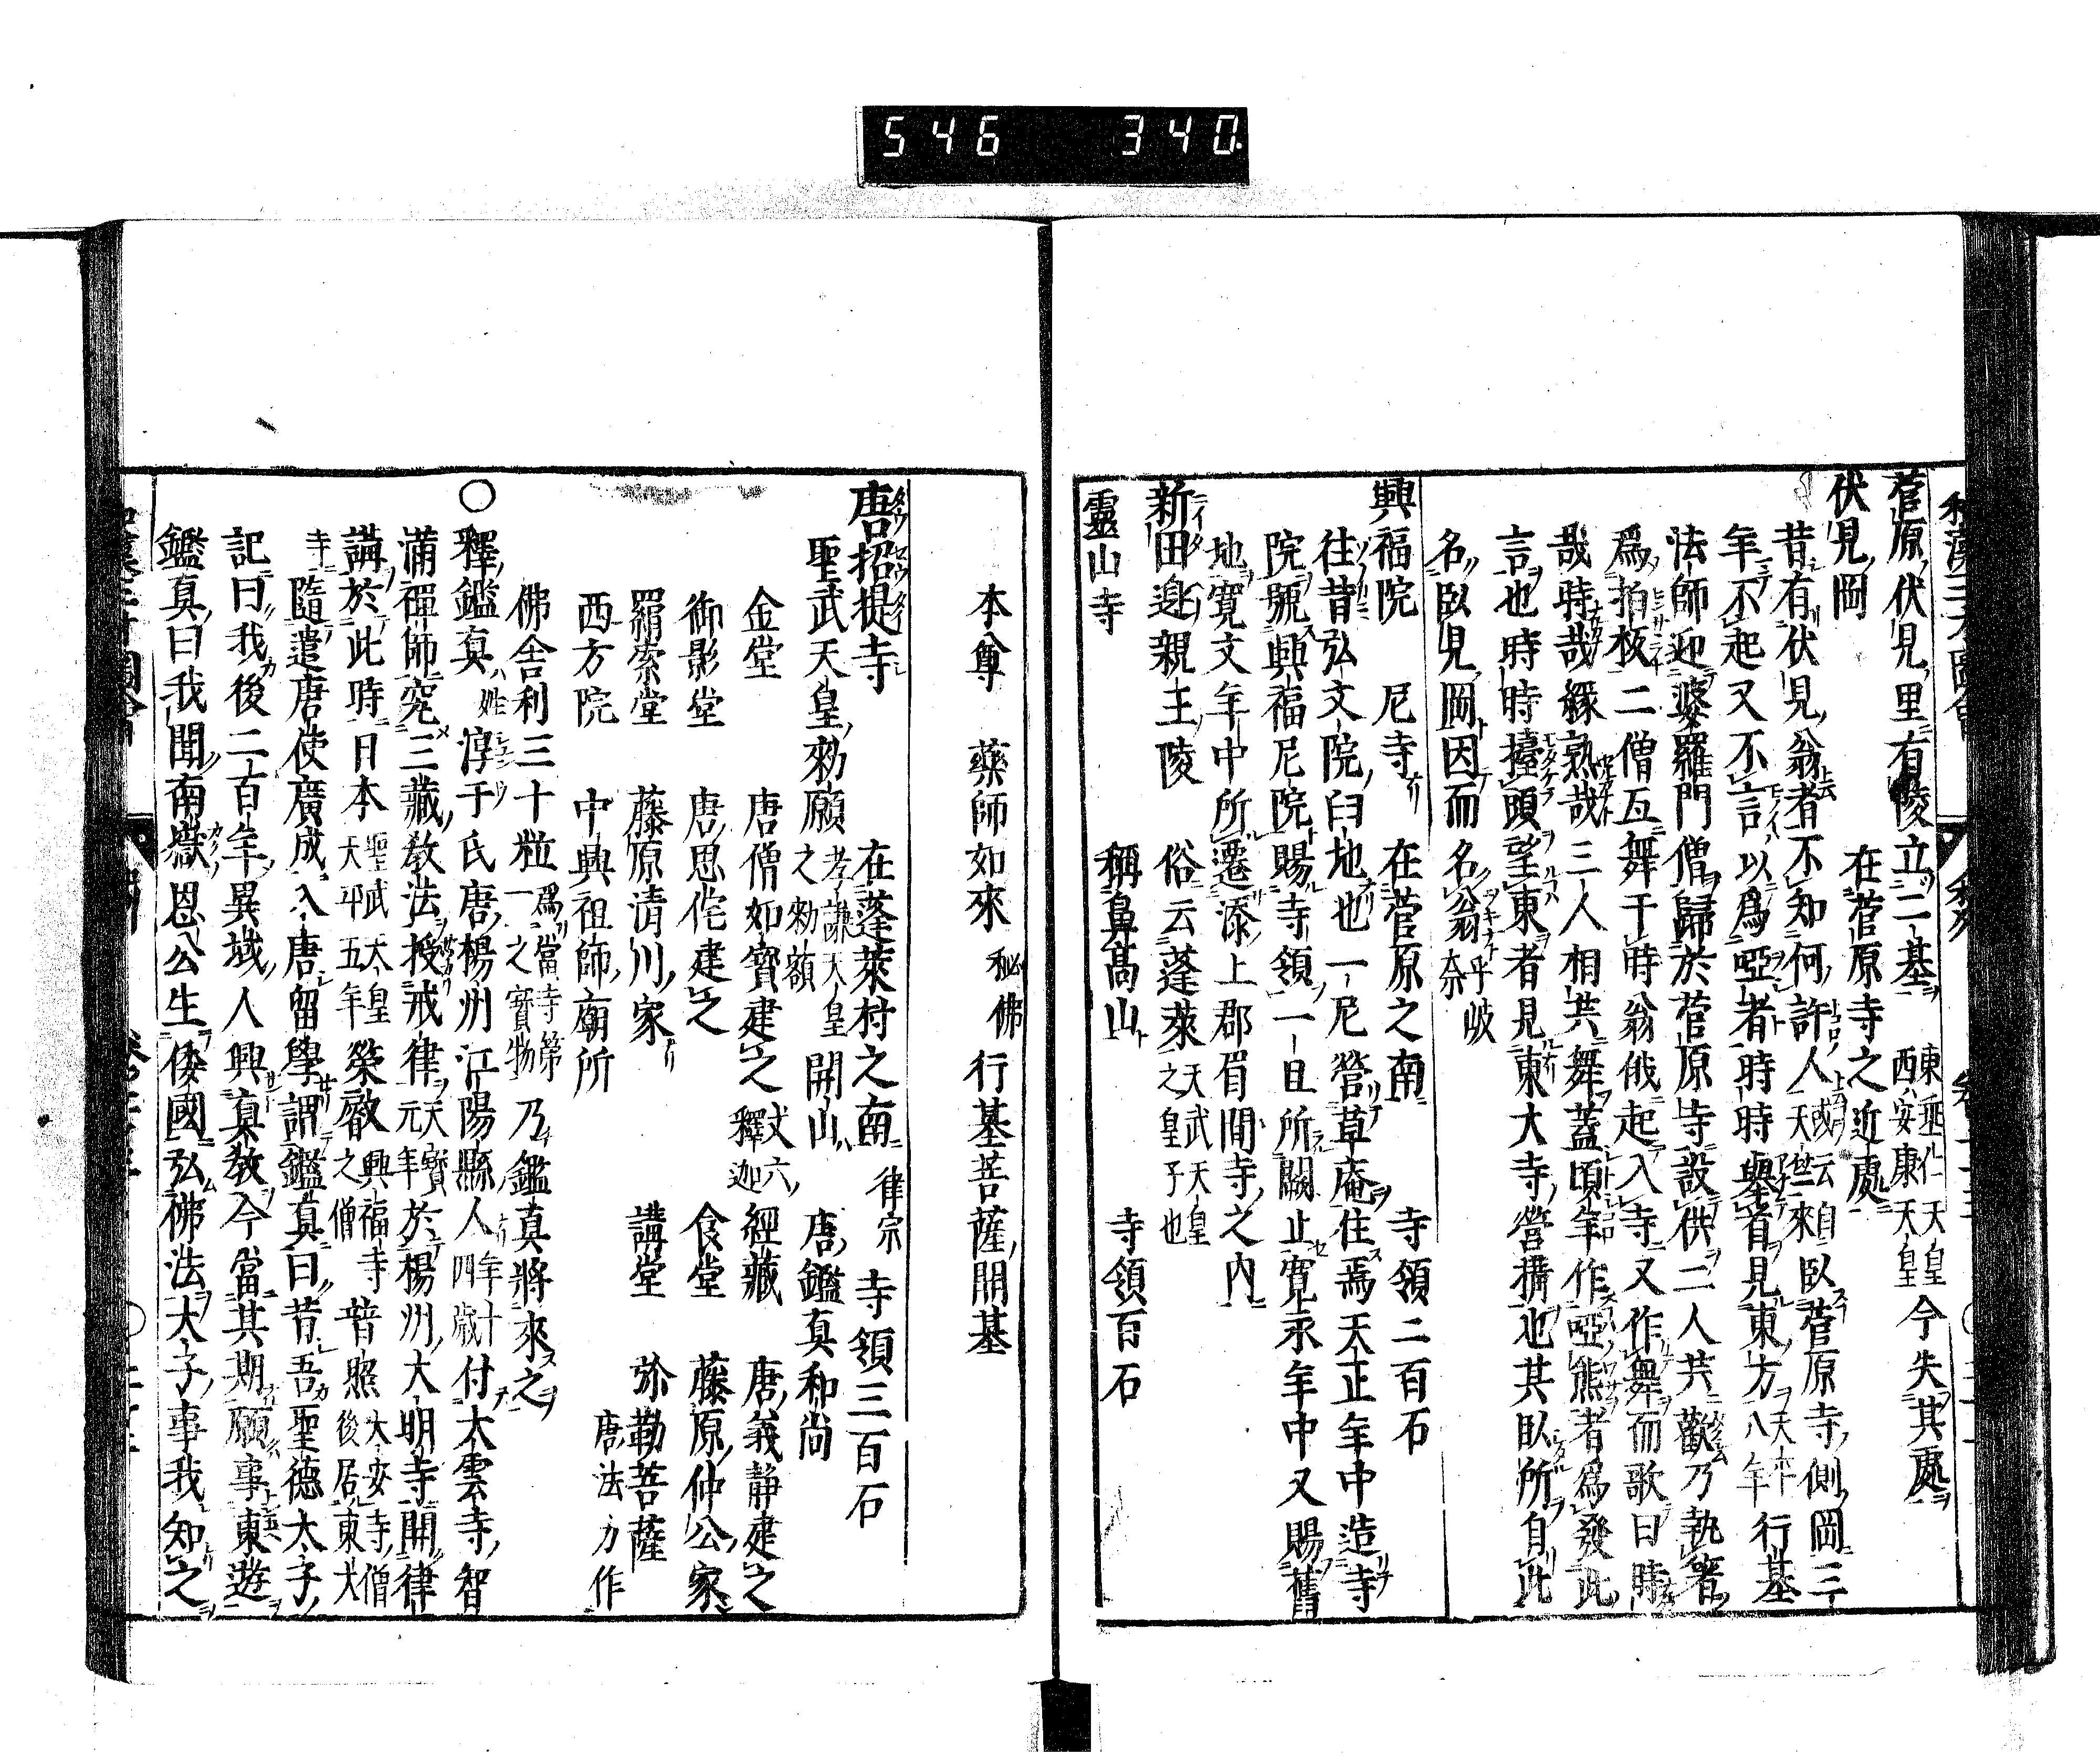 546 340
菅原伏見里有陵立二基 東垂仁天皇 西安康天皇 今失其處
伏見岡 在菅原寺之近處
昔有伏見翁者不知何許人 或云自天竺來 臥菅原寺側岡三
年不起又不言以爲啞者時時擧首見東方 天平八年 行基
法師迎婆羅門僧歸於菅原寺設供二人共歡乃執箸
爲拍板二僧互舞于時翁俄起入寺又作舞而歌曰時
哉時哉緣熟哉三人相共舞蓋頃年作啞態者爲發此
言也時時擡頭望東者見東大寺營搆也其臥所自此
名臥見岡因而名翁
興福院 尼寺 在菅原之南 寺領二百石
往昔弘文院臼地也一尼營草庵住焉天正年中造寺
院號興福尼院賜寺領一旦所闕止寛永年中又賜舊
地寛文年中所遷添上郡眉間寺之内
新田邊親王陵 俗云蓬萊 天武天皇之皇子也
靈山寺 稱鼻高山 寺領百石
本尊 藥師如來 秘佛 行基菩薩開基
唐招提寺 在蓬萊村之南 律宗 寺領三百石
聖武天皇勅願 孝謙天皇之勅額 開山 唐鑑真和尚
金堂 唐僧如寳建之 丈六釋迦 經藏 唐義静建之
御影堂 唐思侘建之 食堂 藤原仲公家
羂索堂 藤原清川家 講堂 弥勒菩薩 唐法力作
西方院 中興祖師廟所
佛舎利三十粒 爲當寺第一之寳物 乃鑑真將來之
○釋鑑真 姓淳于氏唐楊洲江陽縣人 年十四歳 付大雲寺智
滿禪師究三藏教法授戒律 天寳元年 於楊洲大明寺開律
講於此時日本 聖武天皇天平五年 榮叡 興福寺之僧 普照 大安寺僧後居東大寺
隨遣唐使廣成入唐留學謂鑑真曰昔吾聖德太子
記曰我後二百年異域人興真教今當其期願事東遊
鑑真曰我聞南嶽恩公生倭國弘佛法太子事我知之